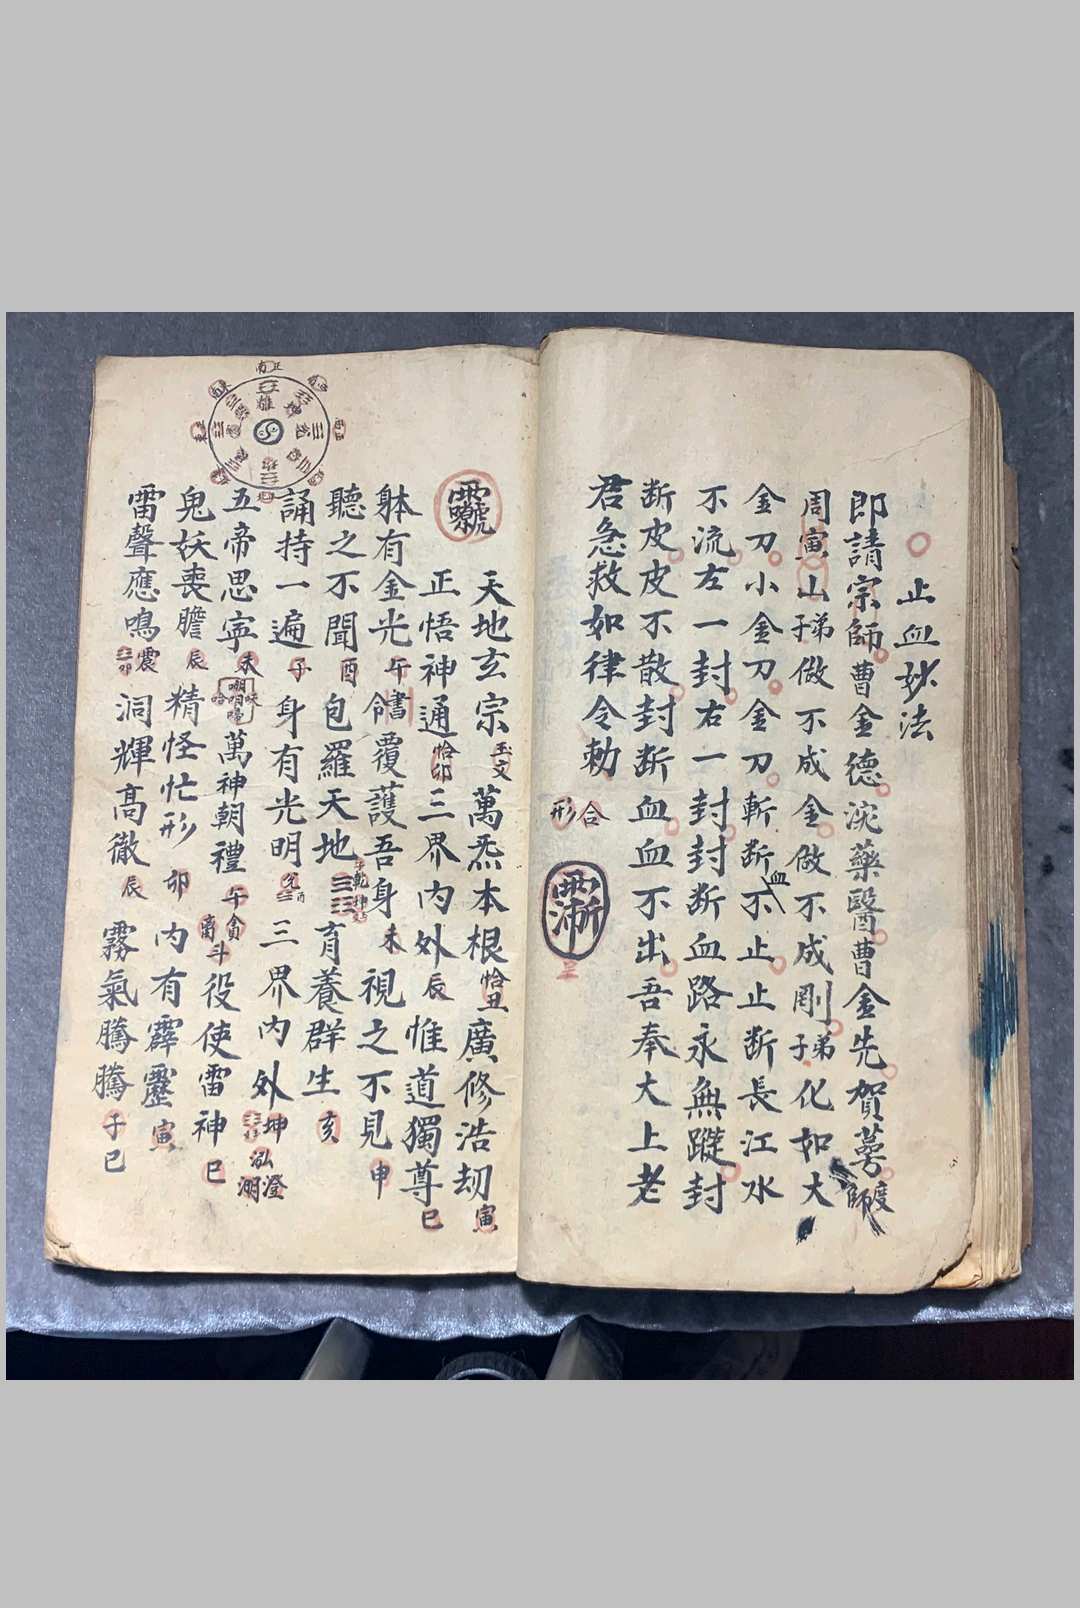 止血妙法
即請宗師曹金德浣藥醫曹金先賀蒡度師
周寅山弟子做不成金做不成剛弟子化如大
金刀小金刀金刀斬断血不止止断長江水
不流左一封右一封封断血路永無蹤封
断皮皮不散封断血血不出吾奉大上老
君急救如律令勅
合形
天地玄宗玉文萬炁本根恰丑廣修浩刼寅
正悟神通恰卯三界内外辰惟道獨尊巳
躰有金光午書令覆護吾身未視之不見申
聽之不聞酉包羅天地育養群生亥
誦持一遍子身有光明三界内外坤
五帝思寧未萬神朝禮午役使雷神巳
鬼妖喪膽辰精怪忙形卯内有霹靂寅
雷聲應鳴震洞輝髙徹辰霧氣騰騰子巳